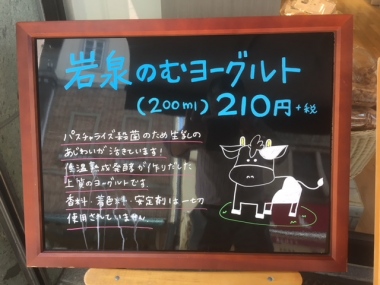 岩泉のむヨーグルト
(200ml) 210円+税
パスチャライズ殺菌のため生乳の
あじわいが活きています!
低温熟成発酵が作りだした
上質のヨーグルトです
香料・着色料・安定剤は一切
使用されていません